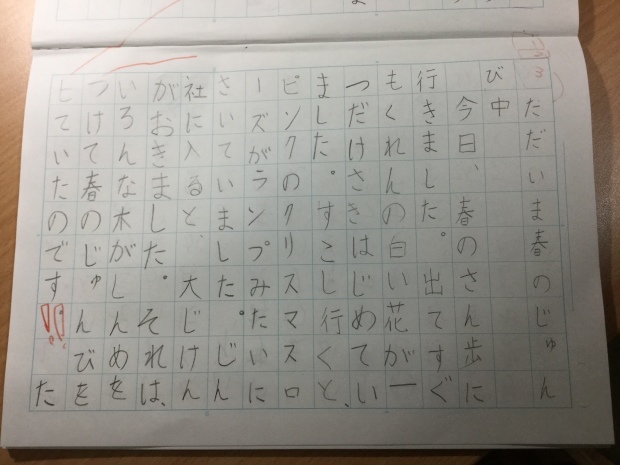 ただいま春のじゅん
び中
今日、春のさん歩に
行きました。出てすぐ
もくれんの白い花が一
つだけさきはじめてい
ました。すこし行くと、
ピンクのクリスマスロ
ーズがランプみたいに
さいていました。じん
社に入ると、大じけん
がおきました。それは、
いろんな木がしんめを
つけて春のじゅんびを
していたのです!!た